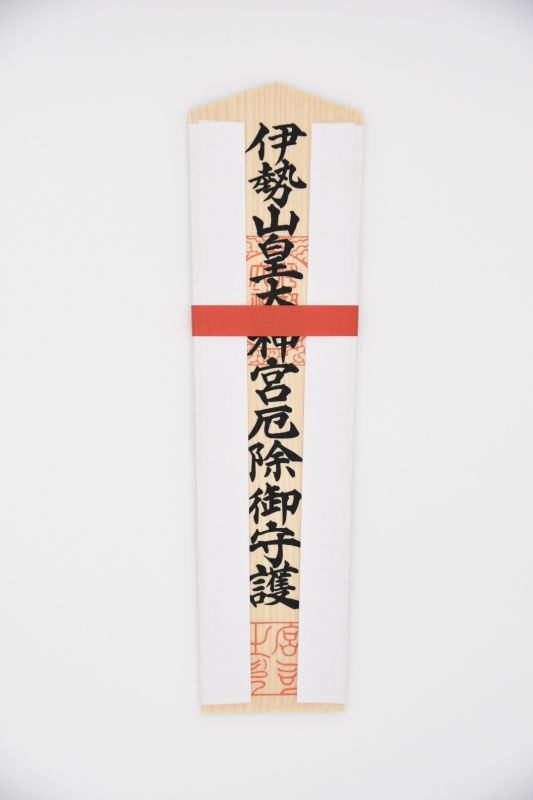 伊勢山皇大神宮厄除御守護